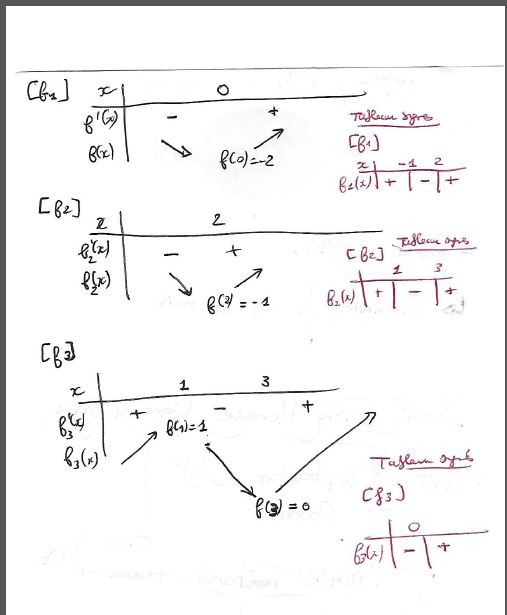 [f1]
x 0
f'(x) - +
f(x) f(0)=-2
Tableau signe
[f1]
x -1 2
f1(x) + - +
[f2]
x 2
f2'(x) - +
f2(x) f(2)=-1
Tableau signe
[f2]
1 3
f2(x) + - +
[f3]
x 1 3
f3'(x) + - +
f3(x) f(1)=1
f(3)=0
Tableau signe
[f3]
0
f3(x) - +